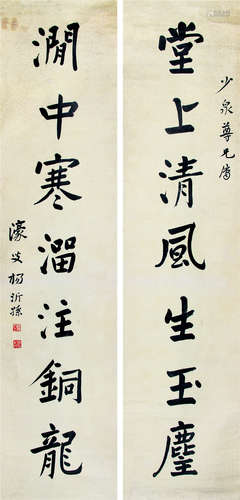 少泉尊兄属
堂上清風生玉麈
澗中寒溜注銅龍
濠叟楊沂孫